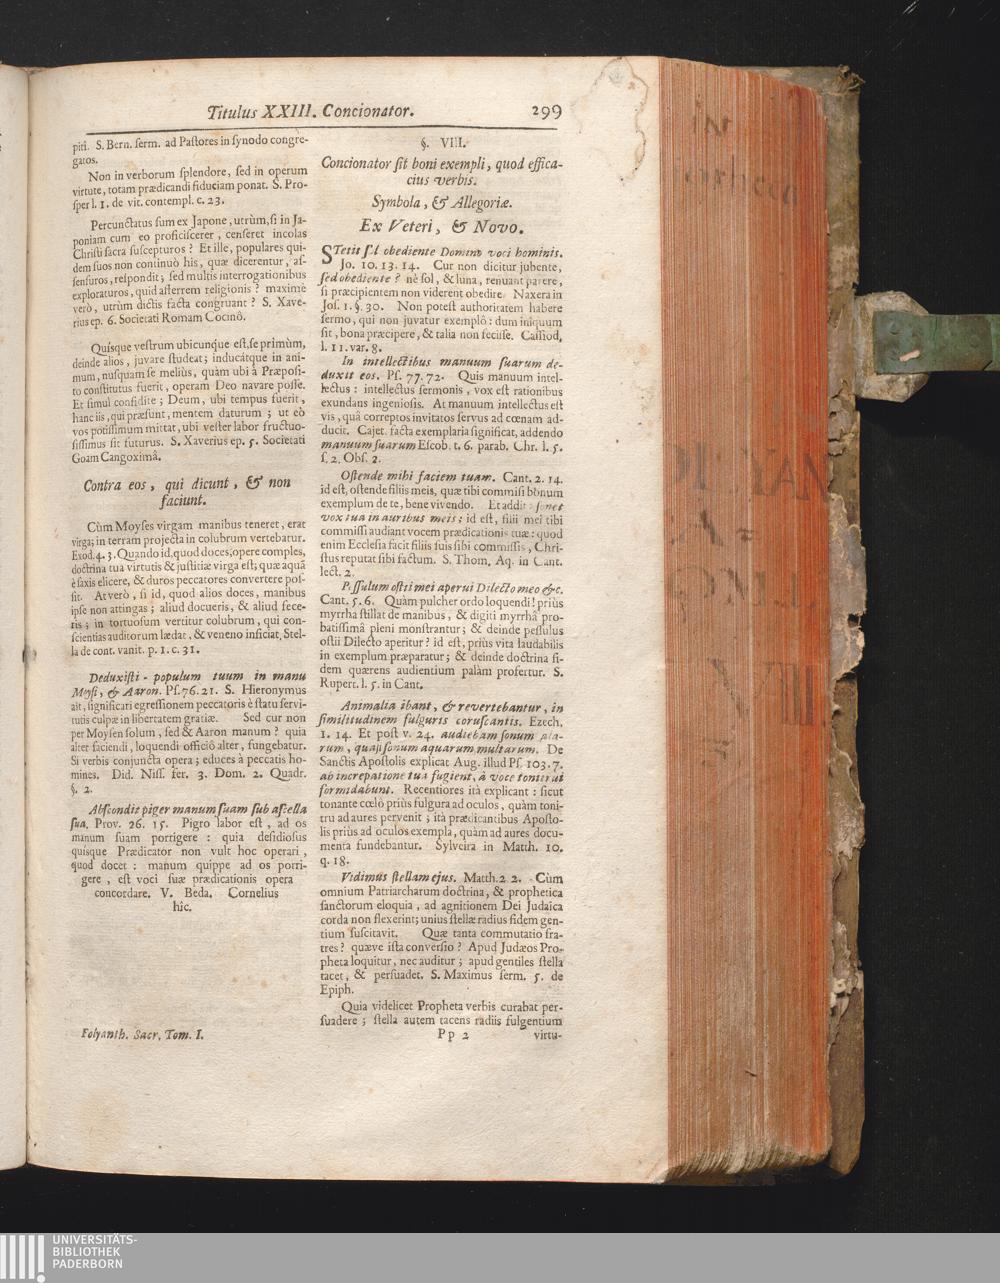 Titulus XXIII. Concionator. 299
piti. S. Bern. ſerm. ad Paſtores in ſynodo congre-
gatos.
Non in verborum ſplendore, ſed in operum
virtute, totam prædicandi fiduciam ponat. S. Pro-
ſper l. 1. de vit. contempl. c. 23.
Percunctatus ſum ex Japone, utrùm, ſi in Ja-
poniam cum eo proficiſcerer, cenſeret incolas
Chriſti ſacra ſuſcepturos? Et ille, populares qui-
dem ſuos non continuò his, quæ dicerentur, aſ-
ſenſuros, reſpondit; ſed multis interrogationibus
exploraturos, quid afferrem religionis? maximè
verò, utrùm dictis facta congruant? S. Xave-
rius ep. 6. Societati Romam Cocinô.
Quiſque veſtrum ubicunque eſt, ſe primùm,
deinde alios, juvare ſtudeat; inducátque in ani-
mum, nuſquam ſe meliùs, quàm ubi à Præpoſi-
to conſtitutus fuerit, operam Deo navare poſſe.
Et ſimul confidite; Deum, ubi tempus fuerit,
hanc iis, qui præſunt, mentem daturum; ut eò
vos potiſſimum mittat, ubi veſter labor fructuo-
ſiſſimus ſit futurus. S. Xaverius ep. 5. Societati
Goam Cangoximâ.
Contra eos, qui dicunt, & non
faciunt.
Cùm Moyſes virgam manibus teneret, erat
virga; in terram projecta in colubrum vertebatur.
Exod. 4. 3. Quando id, quod doces, opere comples,
doctrina tua virtutis & juſtitiæ virga eſt; quæ aquâ
è ſaxis elicere, & duros peccatores convertere poſ-
ſit. At verò, ſi id, quod alios doces, manibus
ipſe non attingas; aliud docueris, & aliud fece-
ris; in tortuoſum vertitur colubrum, qui con-
ſcientias auditorum lædat, & veneno inficiat, Stel-
la de cont. vanit. p. 1. c. 31.
Deduxiſti - populum tuum in manu
Moyſi, & Aaron. Pſ. 76. 21. S. Hieronymus
ait, ſignificari egreſſionem peccatoris è ſtatu ſervi-
tutis culpæ in libertatem gratiæ. Sed cur non
per Moyſen ſolum, ſed & Aaron manum? quia
alter faciendi, loquendi officiô alter, fungebatur.
Si verbis conjuncta opera; educes à peccatis ho-
mines. Did. Niſſ. fer. 3. Dom. 2. Quadr.
§. 2.
Abſcondit piger manum ſuam ſub aſcella
ſua. Prov. 26. 15. Pigro labor eſt, ad os
manum ſuam porrigere: quia deſidioſus
quiſque Prædicator non vult hoc operari,
quod docet: manum quippe ad os porri-
gere, eſt voci ſuæ prædicationis opera
concordare. V. Beda. Cornelius
hic.
Polyanth. Sacr. Tom. I.
§. VIII.
Concionator ſit boni exempli, quod effica-
cius verbis.
Symbola, & Allegoriæ.
Ex Veteri, & Novo.
STetit ſol obediente Domino voci hominis.
Jo. 10. 13. 14. Cur non dicitur jubente,
ſed obediente? nè ſol, & luna, renuant parere,
ſi præcipientem non viderent obedire. Naxera in
Joſ. 1. §. 30. Non poteſt authoritatem habere
ſermo, qui non juvatur exemplô: dum iniquum
ſit, bona præcipere, & talia non feciſſe. Caſſiod.
l. 11. var. 8.
In intellectibus manuum ſuarum de-
duxit eos. Pſ. 77. 72. Quis manuum intel-
lectus: intellectus ſermonis, vox eſt rationibus
exundans ingenioſis. At manuum intellectus eſt
vis, quâ correptos invitatos ſervus ad cœnam ad-
ducit. Cajet. facta exemplaria ſignificat, addendo
manuum ſuarum Eſcob. t. 6. parab. Chr. l. 5.
ſ. 2. Obſ. 2.
Oſtende mihi faciem tuam. Cant. 2. 14.
id eſt, oſtende filiis meis, quæ tibi commiſi bonum
exemplum de te, bene vivendo. Et addit: ſonet
vox tua in auribus meis; id eſt, filii mei tibi
commiſſi audiant vocem prædicationis tuæ: quod
enim Eccleſia facit filiis ſuis ſibi commiſſis, Chri-
ſtus reputat ſibi factum. S. Thom. Aq. in Cant.
lect. 2.
Peſſulum oſtii mei aperui Dilecto meo &c.
Cant. 5. 6. Quàm pulcher ordo loquendi! priùs
myrrha ſtillat de manibus, & digiti myrrhâ pro-
batiſſimâ pleni monſtrantur; & deinde peſſulus
oſtii Dilecto aperitur? id eſt, priùs vita laudabilis
in exemplum præparatur; & deinde doctrina fi-
dem quærens audientium palàm profertur. S.
Rupert. l. 5. in Cant.
Animalia ibant, & revertebantur, in
ſimilitudinem fulguris coruſcantis. Ezech.
1. 14. Et poſt v. 24. audiebam ſonum ala-
rum, quaſi ſonum aquarum multarum. De
Sanctis Apoſtolis explicat Aug. illud Pſ. 103. 7.
ab increpatione tua fugient, à voce tonitrui
formidabunt. Recentiores ità explicant: ſicut
tonante cœlô priùs fulgura ad oculos, quàm toni-
tru ad aures pervenit; ità prædicantibus Apoſto-
lis priùs ad oculos exempla, quàm ad aures docu-
menta fundebantur. Sylveira in Matth. 10.
q. 18.
Vidimus ſtellam ejus. Matth. 2 2. Cùm
omnium Patriarcharum doctrina, & prophetica
ſanctorum eloquia, ad agnitionem Dei Judaïca
corda non flexerint; unius ſtellæ radius fidem gen-
tium ſuſcitavit. Quæ tanta commutatio fra-
tres? quæve iſta converſio? Apud Judæos Pro-
pheta loquitur, nec auditur; apud gentiles ſtella
tacet, & perſuadet. S. Maximus ſerm. 5. de
Epiph.
Quia videlicet Propheta verbis curabat per-
ſuadere; ſtella autem tacens radiis fulgentium
Pp 2 virtu-
UNIVERSITÄTS-
BIBLIOTHEK
PADERBORN